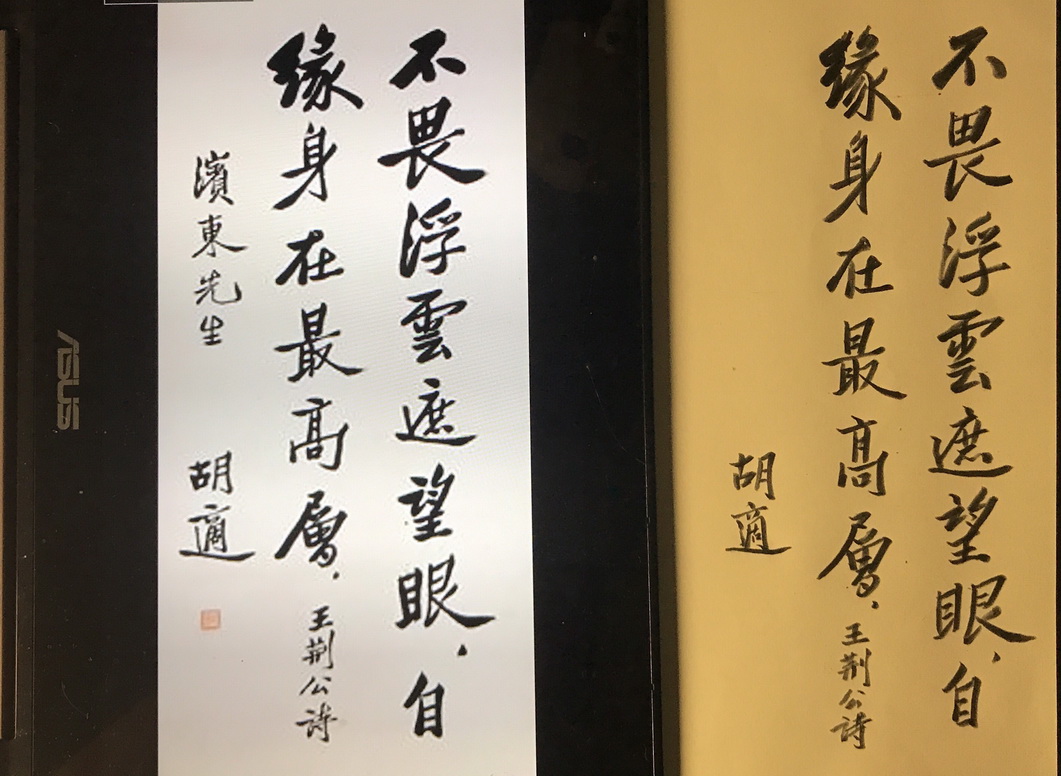 不畏浮雲遮望眼，自
緣身在最高層，王荆公詩
濱東先生
胡適
ASUS
不畏浮雲遮望眼，自
緣身在最高層，王荆公詩
胡適